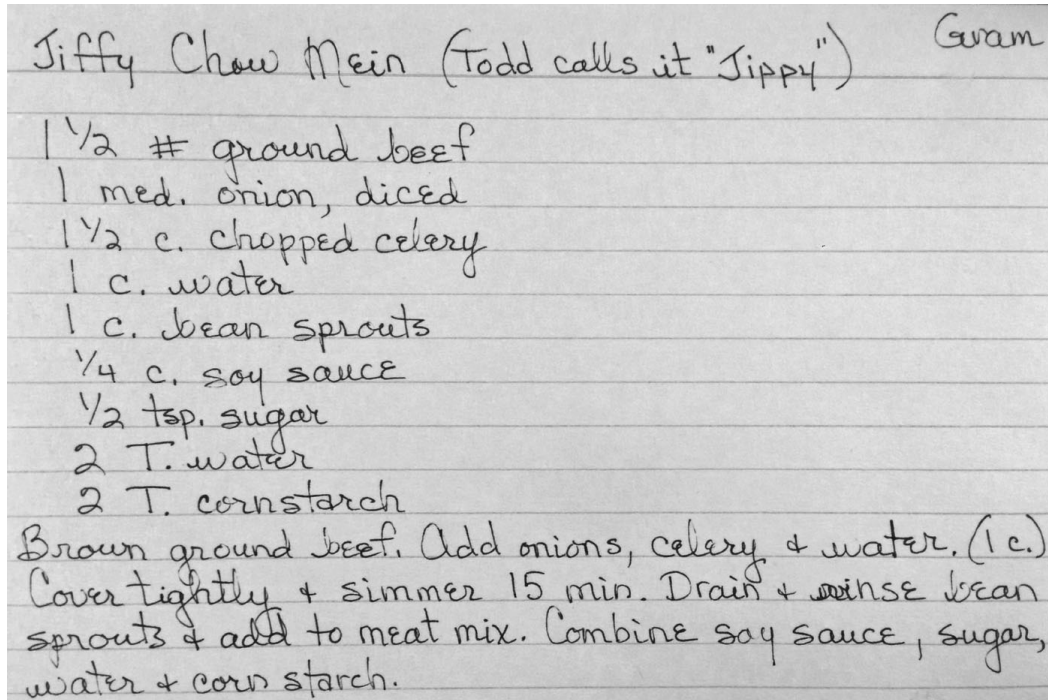 Gram
Jiffy Chow Mein (Todd calls it "Jippy")
1 1/2 # ground beef
1 med. onion, diced
1 1/2 c. chopped celery
1 c. water
1 c. bean sprouts
1/4 c. soy sauce
1/2 tsp. sugar
2 T. water
2 T. cornstarch
Brown ground beef. Add onions, celery & water. (1 c.)
Cover tightly & simmer 15 min. Drain & rinse bean
sprouts & add to meat mix. Combine soy sauce, sugar,
water & corn starch.